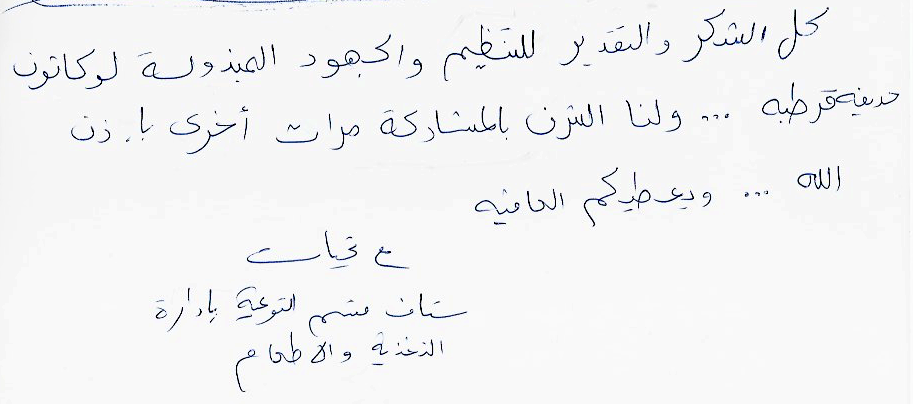 كل الشكر والتقدير للتنظيم والجهود المبذولة لوكاثون
حديقة قرطبه ... ولنا الشرف بالمشاركة مرات أخرى بإذن
الله ... ويعطيكم العافيه
مع تحيات
ستاف قسم التوعية بإدارة
التغذية والاطعام